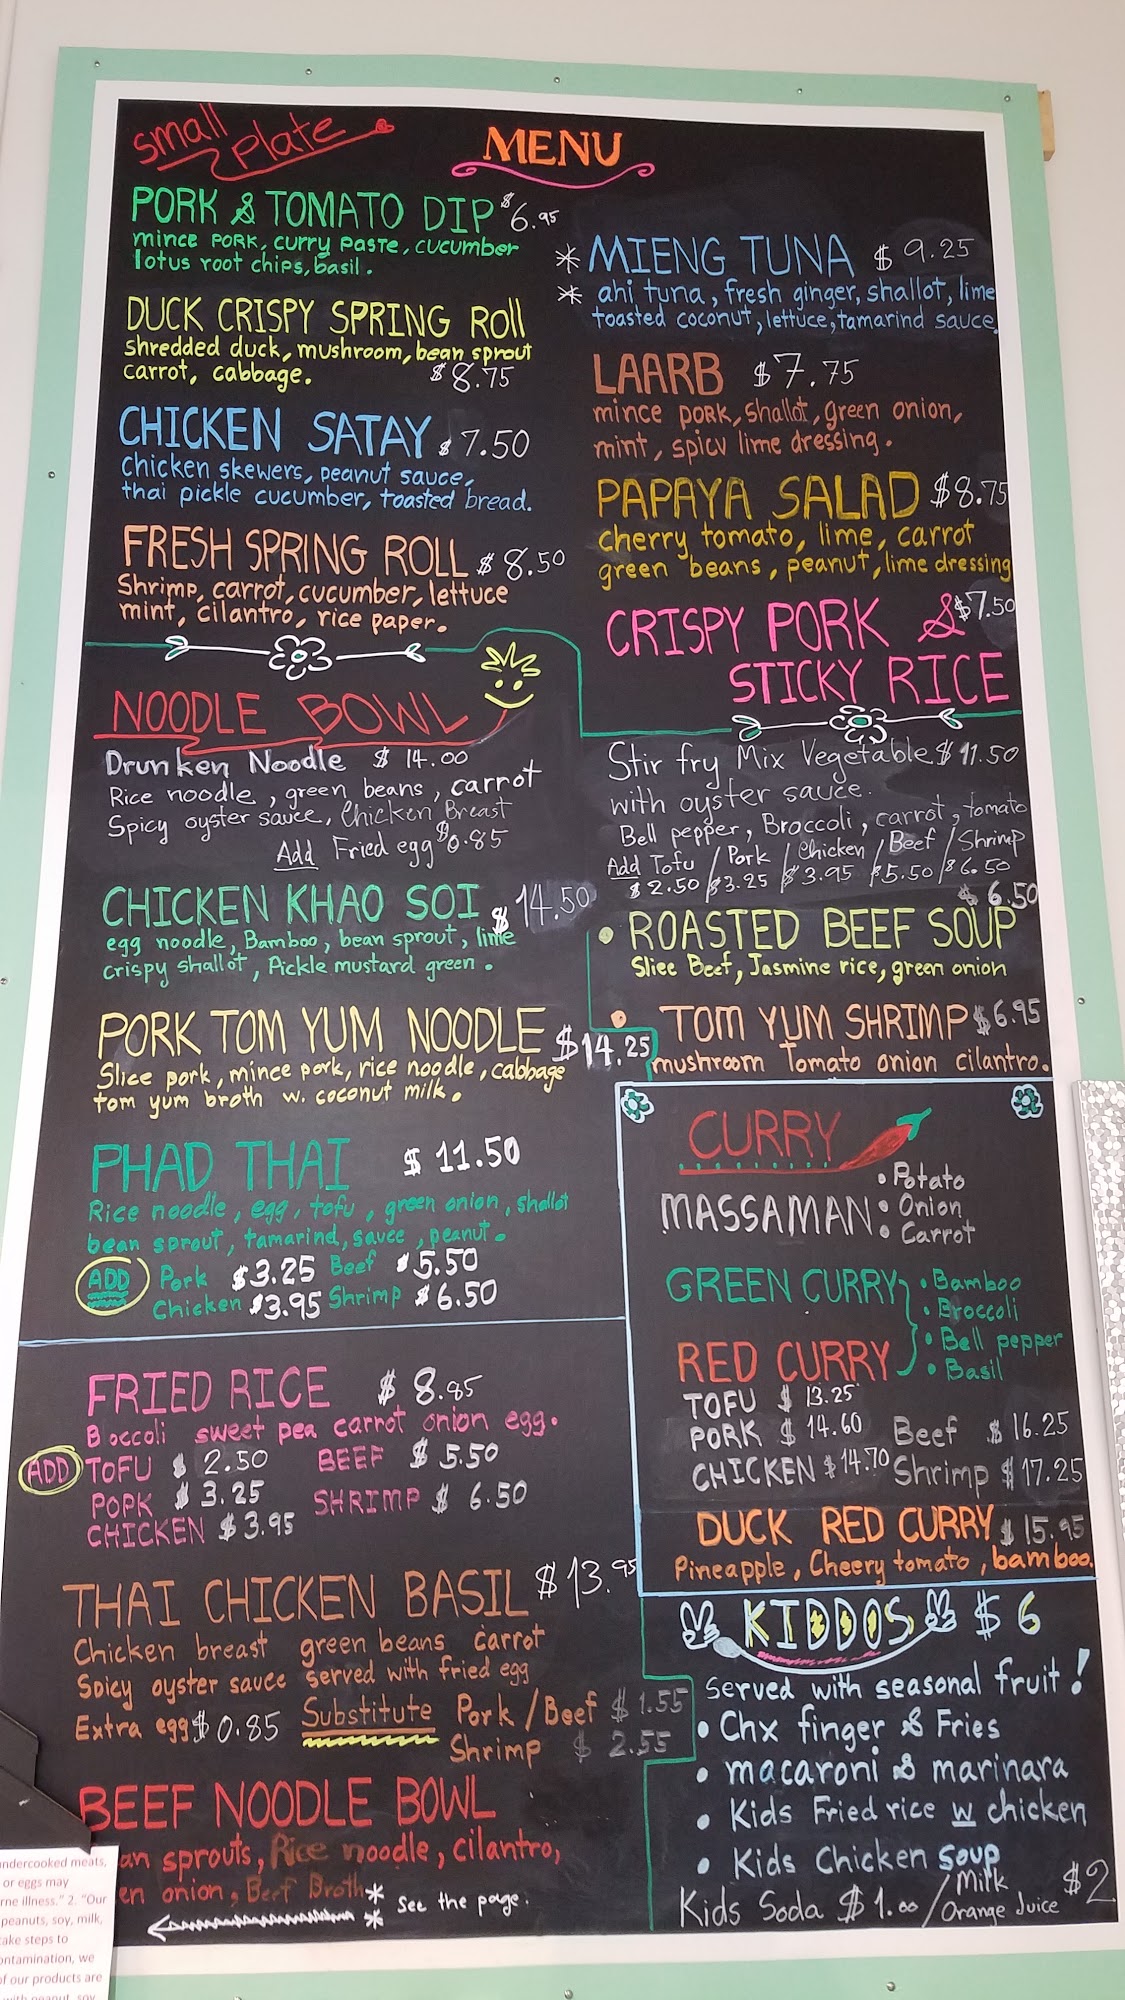 small Plate
MENU
PORK & TOMATO DIP $6.95
mince PORK, curry paste, cucumber
lotus root chips, basil.
DUCK CRISPY SPRING Roll
shredded duck, mushroom, bean sprout
carrot, cabbage. $8.75
CHICKEN SATAY $7.50
Chicken skewers, peanut sauce,
thai pickle cucumber, toasted bread.
FRESH SPRING ROLL $8.50
Shrimp, carrot, cucumber, lettuce
mint, cilantro, rice paper.
* MIENG TUNA $9.25
* ahi tuna, fresh ginger, shallot, lime
toasted coconut, lettuce, tamarind sauce.
LAARB $7.75
mince pork, shallot, green onion,
mint, spicy lime dressing.
PAPAYA SALAD $8.75
cherry tomato, lime, carrot
green beans, peanut, lime dressing
CRISPY PORK & $7.50
STICKY RICE
NOODLE BOWL
Drunken Noodle $14.00
Rice noodle, green beans, carrot
Spicy oyster sauce, Chicken Breast
Add Fried egg $0.85
CHICKEN KHAO SOI $14.50
egg noodle, Bamboo, bean sprout, lime
crispy shallot, Pickle mustard green.
PORK TOM YUM NOODLE $14.25
Slice pork, mince pork, rice noodle, cabbage
tom yum broth w. coconut milk.
PHAD THAI $11.50
Rice noodle, egg, tofu, green onion, shallot
bean sprout, tamarind, sauce, peanut.
ADD Pork $3.25 Beef $5.50
Chicken $3.95 Shrimp $6.50
Stir fry Mix Vegetable $11.50
with oyster sauce.
Bell pepper, Broccoli, carrot, tomato
Add Tofu / Pork / Chicken / Beef / Shrimp
$2.50 / $3.25 / $3.95 / $5.50 / $6.50
$6.50
• ROASTED BEEF SOUP
Slice Beef, Jasmine rice, green onion
• TOM YUM SHRIMP $6.95
mushroom Tomato onion cilantro.
CURRY
MASSAMAN
• Potato
• Onion
• Carrot
GREEN CURRY
RED CURRY
• Bamboo
• Broccoli
• Bell pepper
• Basil
TOFU $13.25
PORK $14.60 Beef $16.25
CHICKEN $14.70 Shrimp $17.25
DUCK RED CURRY $15.95
Pineapple, Cheery tomato, bamboo.
FRIED RICE $8.85
Broccoli sweet pea carrot onion egg.
ADD TOFU $2.50 BEEF $5.50
POPK $3.25 SHRIMP $6.50
CHICKEN $3.95
THAI CHICKEN BASIL $13.95
Chicken breast green beans carrot
Spicy oyster sauce served with fried egg
Extra egg $0.85 Substitute Pork/Beef $1.55
Shrimp $2.55
BEEF NOODLE BOWL
an sprouts, Rice noodle, cilantro,
en onion, Beef Broth
* * See the page.
KIDDOS $6
Served with seasonal fruit!
• Chx finger & Fries
• macaroni & marinara
• Kids Fried rice w chicken
• Kids Chicken soup
Kids Soda $1.00 / Milk Orange Juice $2
ndercooked meats,
or eggs may
rne illness." 2. "Our
peanuts, soy, milk,
ake steps to
ontamination, we
of our products are
with peanut, soy,